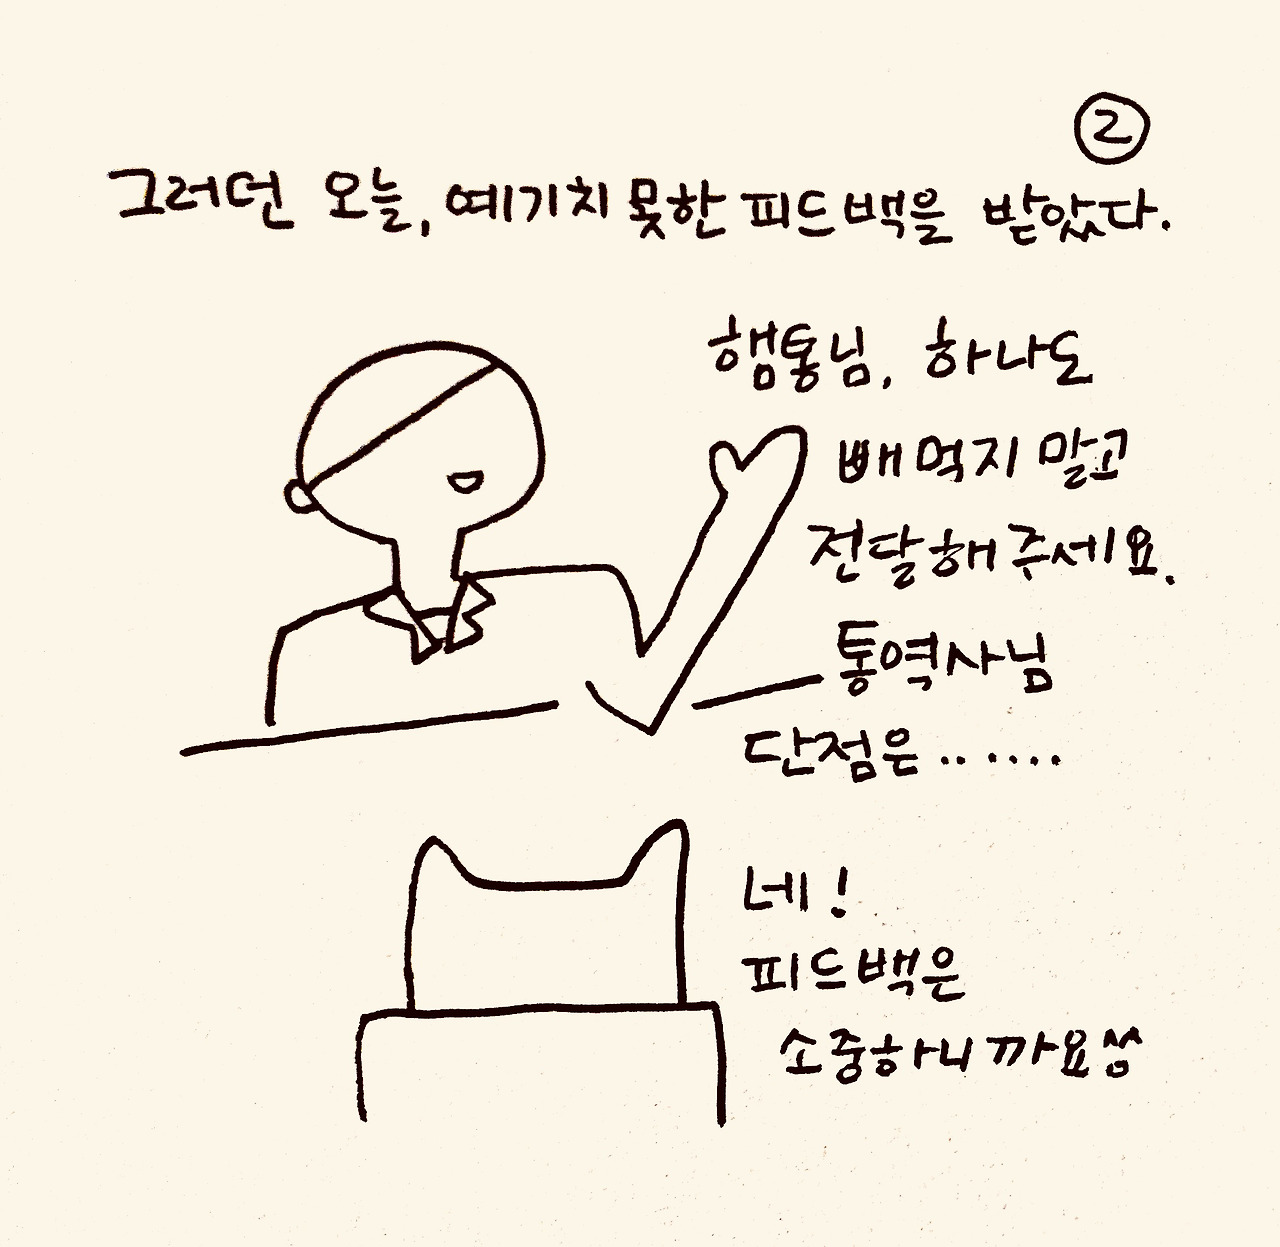 ②
그러던 오늘, 예기치 못한 피드백을 받았다.
행통님, 하나도
빼먹지 말고
전달해 주세요.
통역사님
단점은.......
네!
피드백은
소중하니까요^^